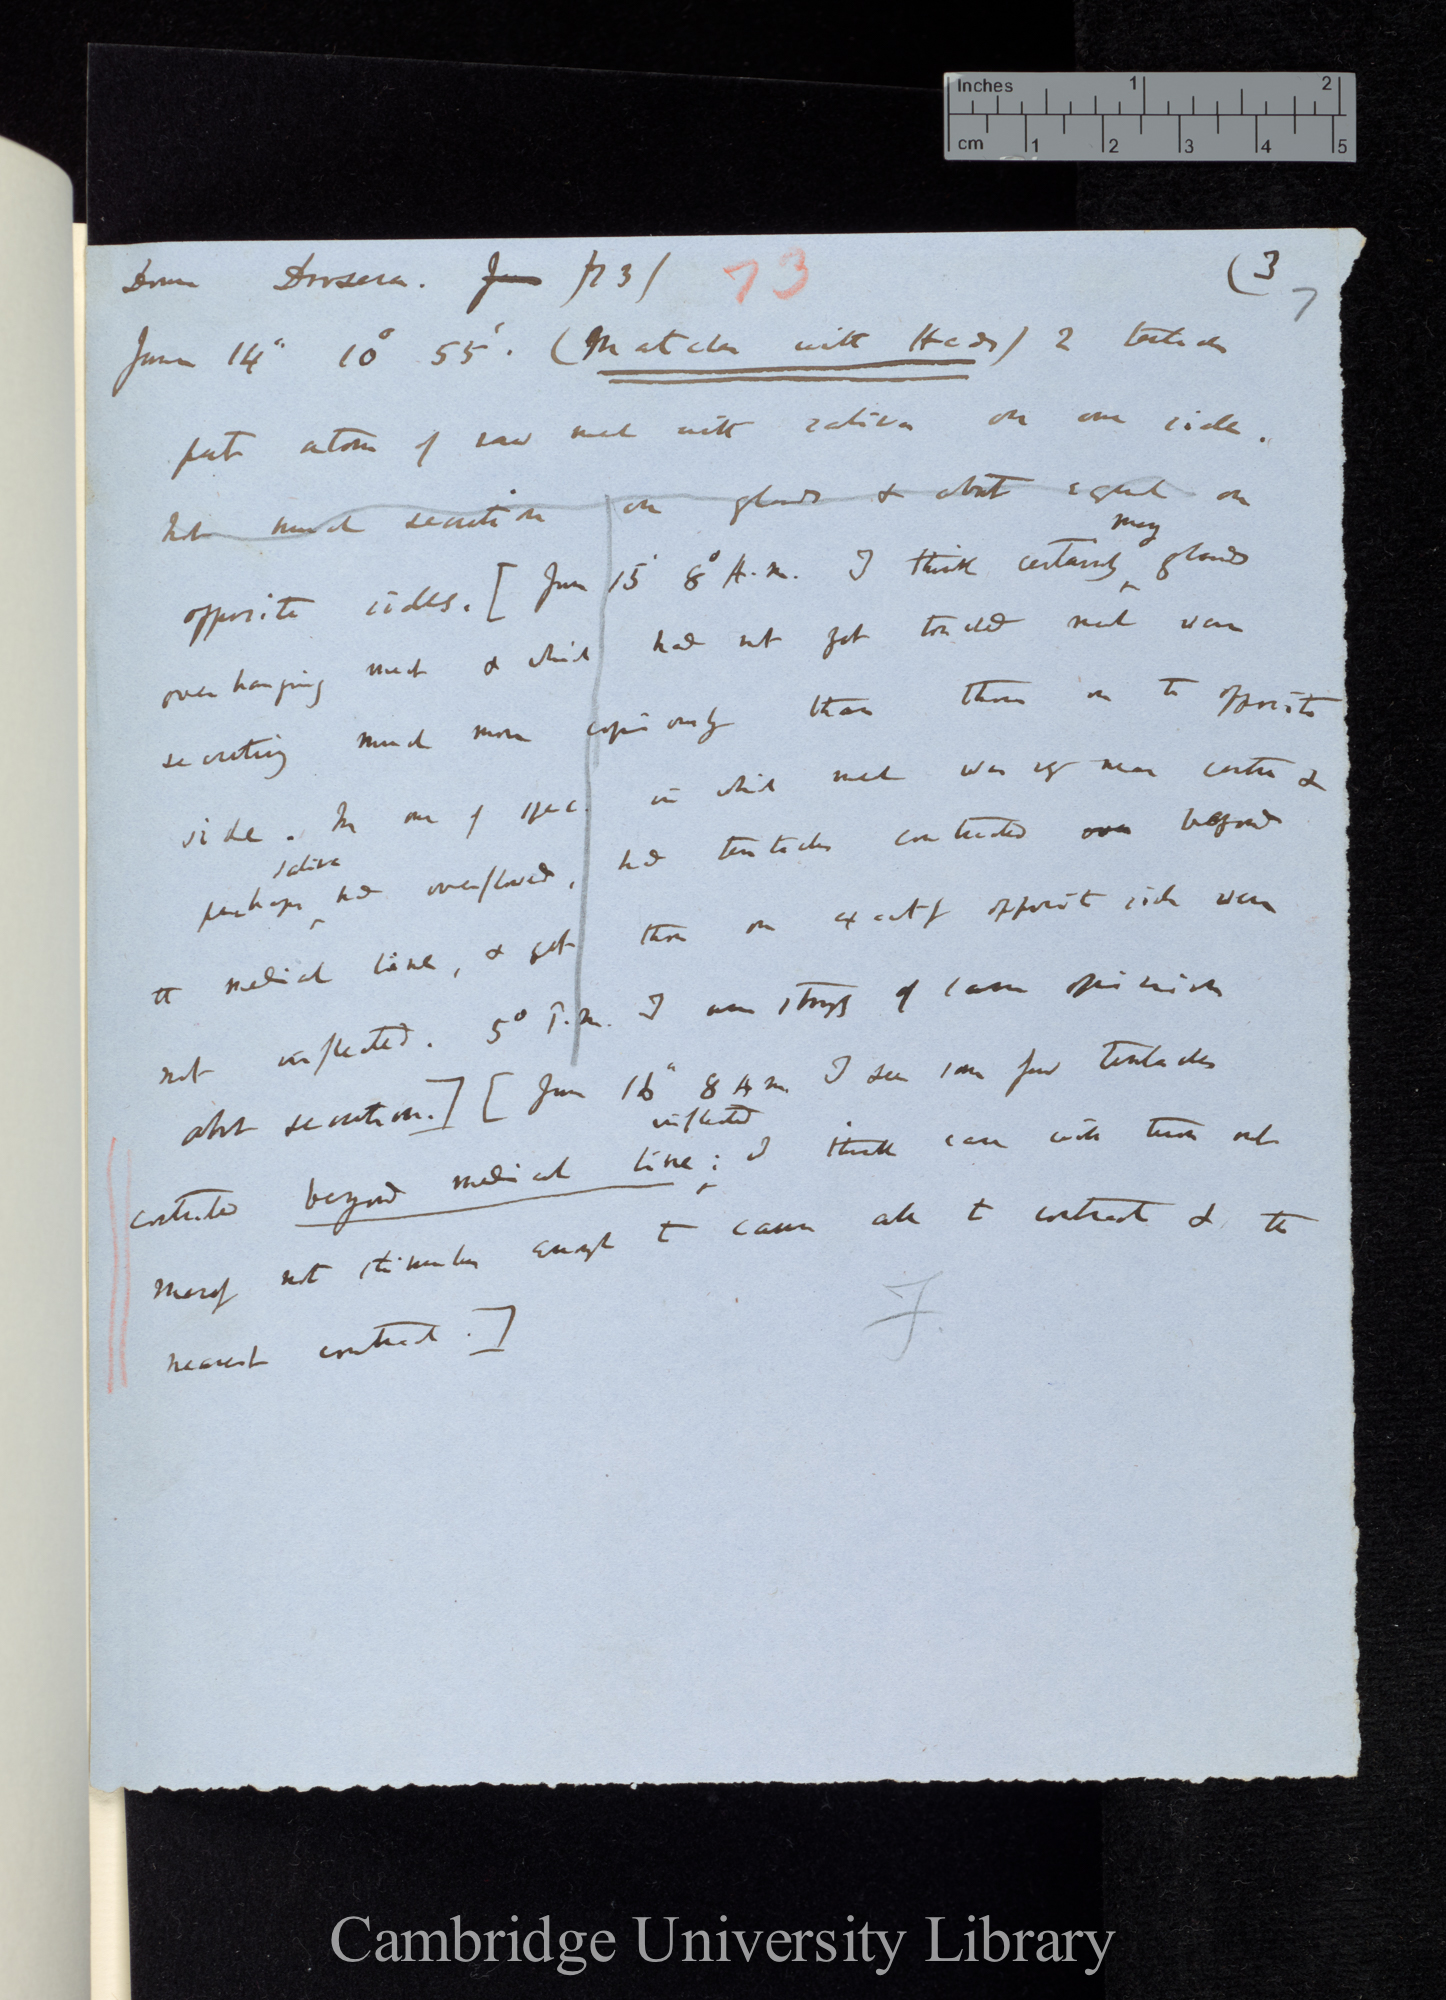 Inches 1 2
cm 1 2 3 4 5
Down Drosera. June /73/ 73 (3
7
June 14" 10° 55'. (Matches with Heads) 2 tentacles
put atom of raw meat with saliva on one side.
Not much secretion on glands & about equal on
opposite sides. [June 15' 8° A.m. I think certainly many glands
overhanging meat & which had not got touched meat were
secreting much more copiously than those on the opposite
side. In one of spec. in which meat was very near centre &
perhaps saliva had overflowed, had tentacles contracted over beyond
the medial line, & yet those on exactly opposite side were
not inflected. 5° P.m. I am strongly of same opinion
about secretion.] [June 16" 8 A m. I see some few tentacles
contracted beyond medial line inflected; I think case with these not
mary not stimulus enough to cause all to contract & the
nearest contract.]
F.
Cambridge University Library